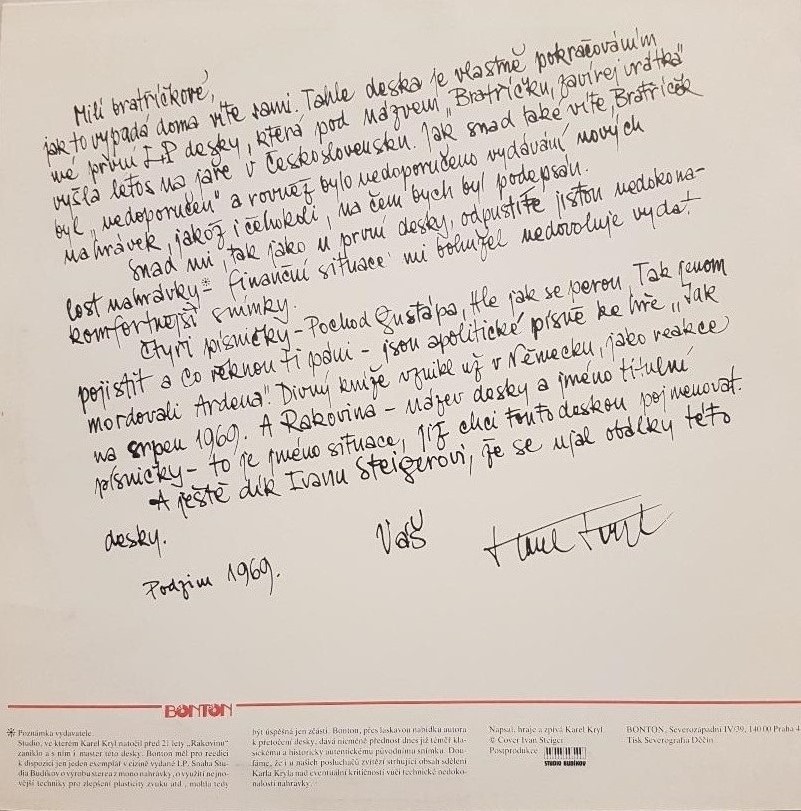 Milí bratříčkové,
jak to vypadá doma víte sami. Tahle deska je vlastně pokračováním
mé první LP desky, která pod názvem „Bratříčku, zavírej vrátka"
vyšla letos na jaře v Československu. Jak snad také víte, Bratříček
byl „nedoporučen" a rovněž bylo nedoporučeno vydávání nových
nahrávek, jakož i čehokoli, na čem bych byl podepsán.
Snad mi, tak jako u první desky, odpustíte jistou nedokona-
lost nahrávky* - finanční situace mi bohužel nedovoluje vydat
komfortnější snímky.
Čtyři písničky - Pochod Gustápa, Hle jak se perou, Tak jenom
pojistit a Co řeknou ti páni - jsou apolitické písně ke hře „Jak
mordovali Ardena". Divný kníže vznikl už v Německu, jako reakce
na srpen 1969. A Rakovina - název desky a jméno titulní
písničky - to je jméno situace, již chci touto deskou pojmenovat.
A ještě dík Ivanu Steigerovi, že se ujal obálky této
desky.
Váš Karel Kryl
Podzim 1969.
BONTON
* Poznámka vydavatele.
Studio, ve kterém Karel Kryl natočil před 21 lety „Rakovinu"
zaniklo a s ním i master této desky. Bonton měl pro reedici
k dispozici jen jeden exemplář v cizině vydané LP. Snaha Stu-
dia Budíkov o výrobu sterea z mono nahrávky, o využití nejno-
vější techniky pro zlepšení plasticity zvuku atd., mohla tedy
být úspěšná jen zčásti. Bonton, přes laskavou nabídku autora
k přetočení desky, dává nicméně přednost dnes již téměř kla-
sickému a historicky autentickému původnímu snímku. Dou-
fáme, že i u našich posluchačů zvítězí strhující obsah sdělení
Karla Kryla nad eventuální kritičností vůči technické nedoko-
nalosti nahrávky.
Napsal, hraje a zpívá Karel Kryl
© Cover Ivan Steiger
Postprodukce
STUDIO BUDÍKOV
BONTON, Severozápadní IV/39, 140 00 Praha 4
Tisk Severografia Děčín